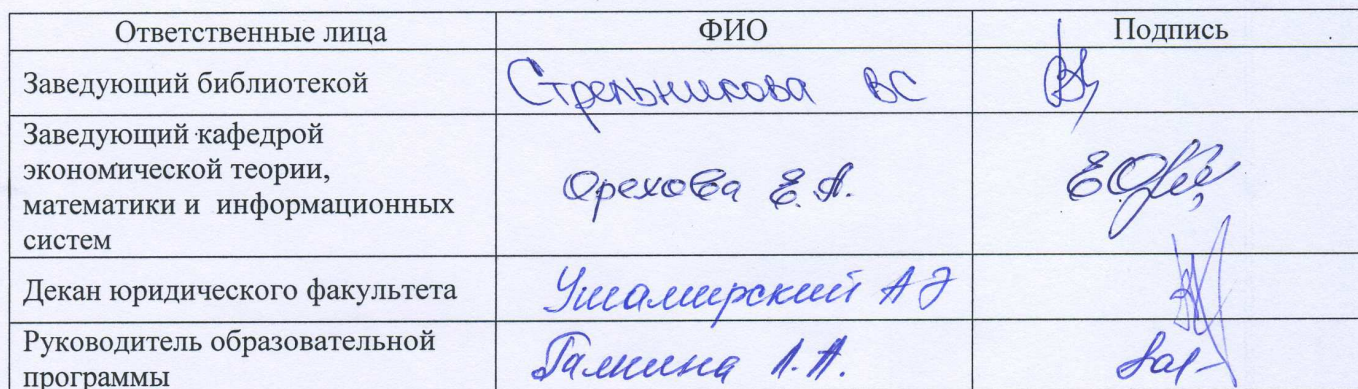 Ответственные лица ФИО Подпись
Заведующий библиотекой Стрельникова ВС
Заведующий кафедрой
экономической теории,
математики и информационных
систем
Орехова Е.А.
Декан юридического факультета Ушамирский А Э
Руководитель образовательной
программы
Галкина Л.А.